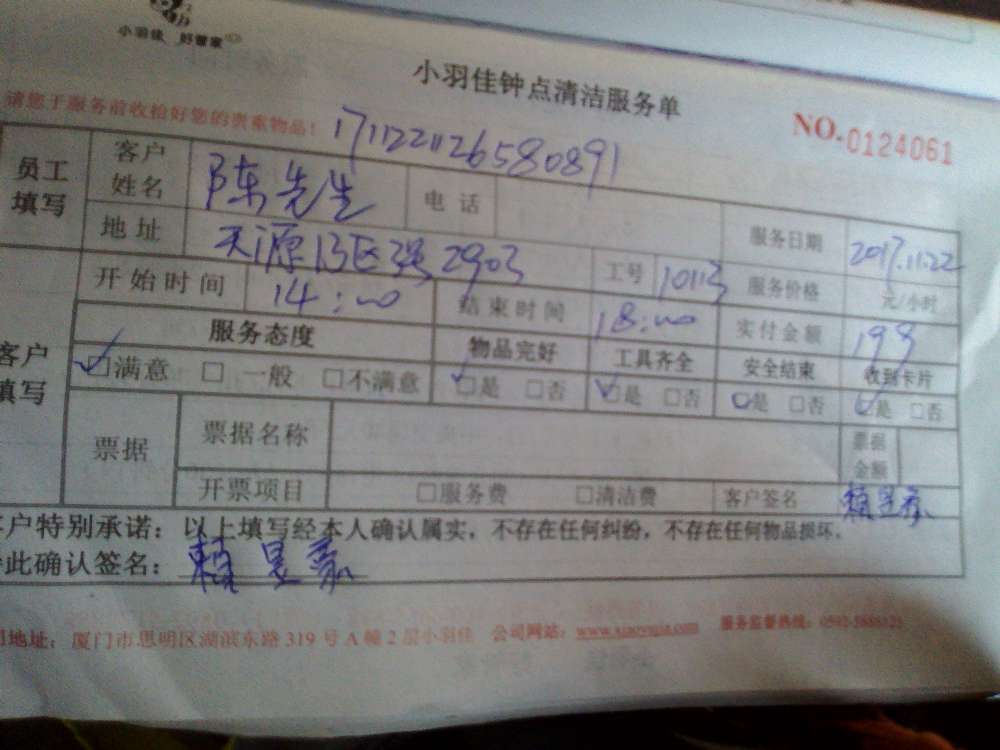 小羽佳 好管家
小羽佳钟点清洁服务单
请您于服务前收拾好您的贵重物品！
1711221126580891
NO.0124061
员工填写 客户姓名 陈先生 电话 服务日期 2017.11.22
地址 天源13区 2903 工号 10113 服务价格 元/小时
客户填写 开始时间 14:00 结束时间 18:00 实付金额 199
服务态度 物品完好 工具齐全 安全结束 收到卡片
☑满意 □一般 □不满意 ☑是 □否 ☑是 □否 ☑是 □否 ☑是 □否
票据 票据名称 票据金额
开票项目 □服务费 □清洁费 客户签名 赖
客户特别承诺：以上填写经本人确认属实，不存在任何纠纷，不存在任何物品损坏。
此确认签名：赖
地址：厦门市思明区湖滨东路 319 号 A 幢 2 层小羽佳 公司网站： 服务监督热线：